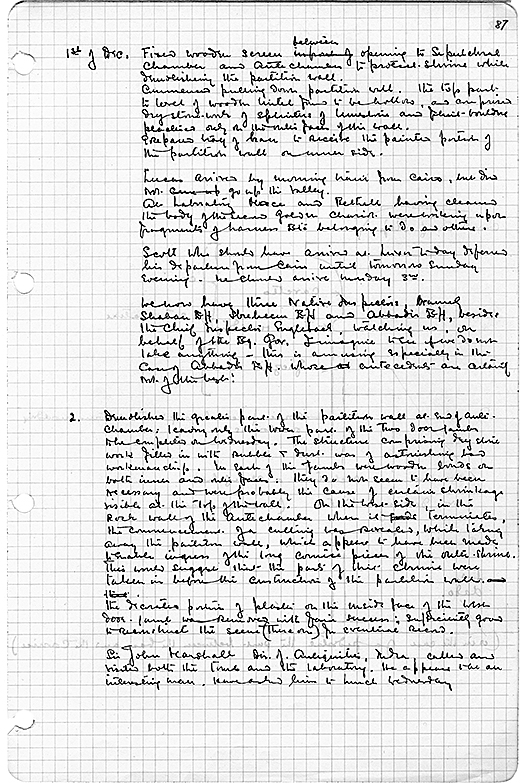 87
1st of Dec. Fixed wooden screen between opening to Sepulchral
Chamber and Antechamber to protect shrine while
demolishing the partition wall.
Commenced pulling down partition wall. The top part
to level of wooden lintel found to be hollow, and comprised
dry stone work of splinters of limestone and
plastered only on the outer face of the wall.
Prepared tray of to receive the painted portion of
the partition wall on inner side.
Lucas arrived by morning train from Cairo, but did
not go up the valley.
At Laboratory Mace and Bethell having cleaned
the body of the second golden chariot were working upon
fragments of harness etc belonging to do and others.
Scott who should have arrived at Luxor today deferred
his departure from Cairo until tomorrow Sunday
evening. he should arrive Monday 3rd.
We now have three Native Inspectors,
Shaban Eff, Ibraheem Eff and Abbadir Eff, beside
the Chief Inspector Engelbach, watching us, on
behalf of the Eg. Gov. I imagine to see if we do not
take anything - this is amusing especially in the
case of Abbadir Eff. whose antecedents are
not of the best!
2. Demolished the greater part of the partition wall at end of Ante-
chamber: leaving only the lower part of the two door jambs
to be completed on Wednesday. The structure comprising dry stone
work filled in with rubble & dust was of astonishing bad
workmanship. In each of the jambs were wooden bonds on
both inner and outer faces. They do not seem to have been
necessary and were probably the cause of certain shrinkage
visible at the top of the wall. On the west side, in the
rock wall of the Antechamber where it terminates,
the commencement of a cutting was revealed, while taking
away the partition wall, which appears to have been made
to enable ingress of the long cornice pieces of the outer shrine.
This would suggest that the parts of that shrine were
taken in before the construction of the partition wall.
The decorated portion of plaster on the inside face of the west
door jamb was removed with fair success: sufficiently good
to reconstruct the scene (thereon) for eventual record.
Sir John Marshall Dir. of Antiquities, India called and
visited both the tomb and the laboratory. He appears to be an
interesting man. Have asked him to lunch Wednesday